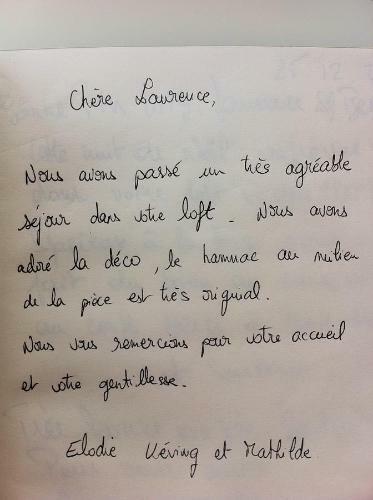 Chère Laurence,
Nous avons passé un très agréable
séjour dans votre loft. Nous avons
adoré la déco, le hamac au milieu
de la pièce est très original.
Nous vous remercions pour votre accueil
et votre gentillesse.
Elodie et Mathilde